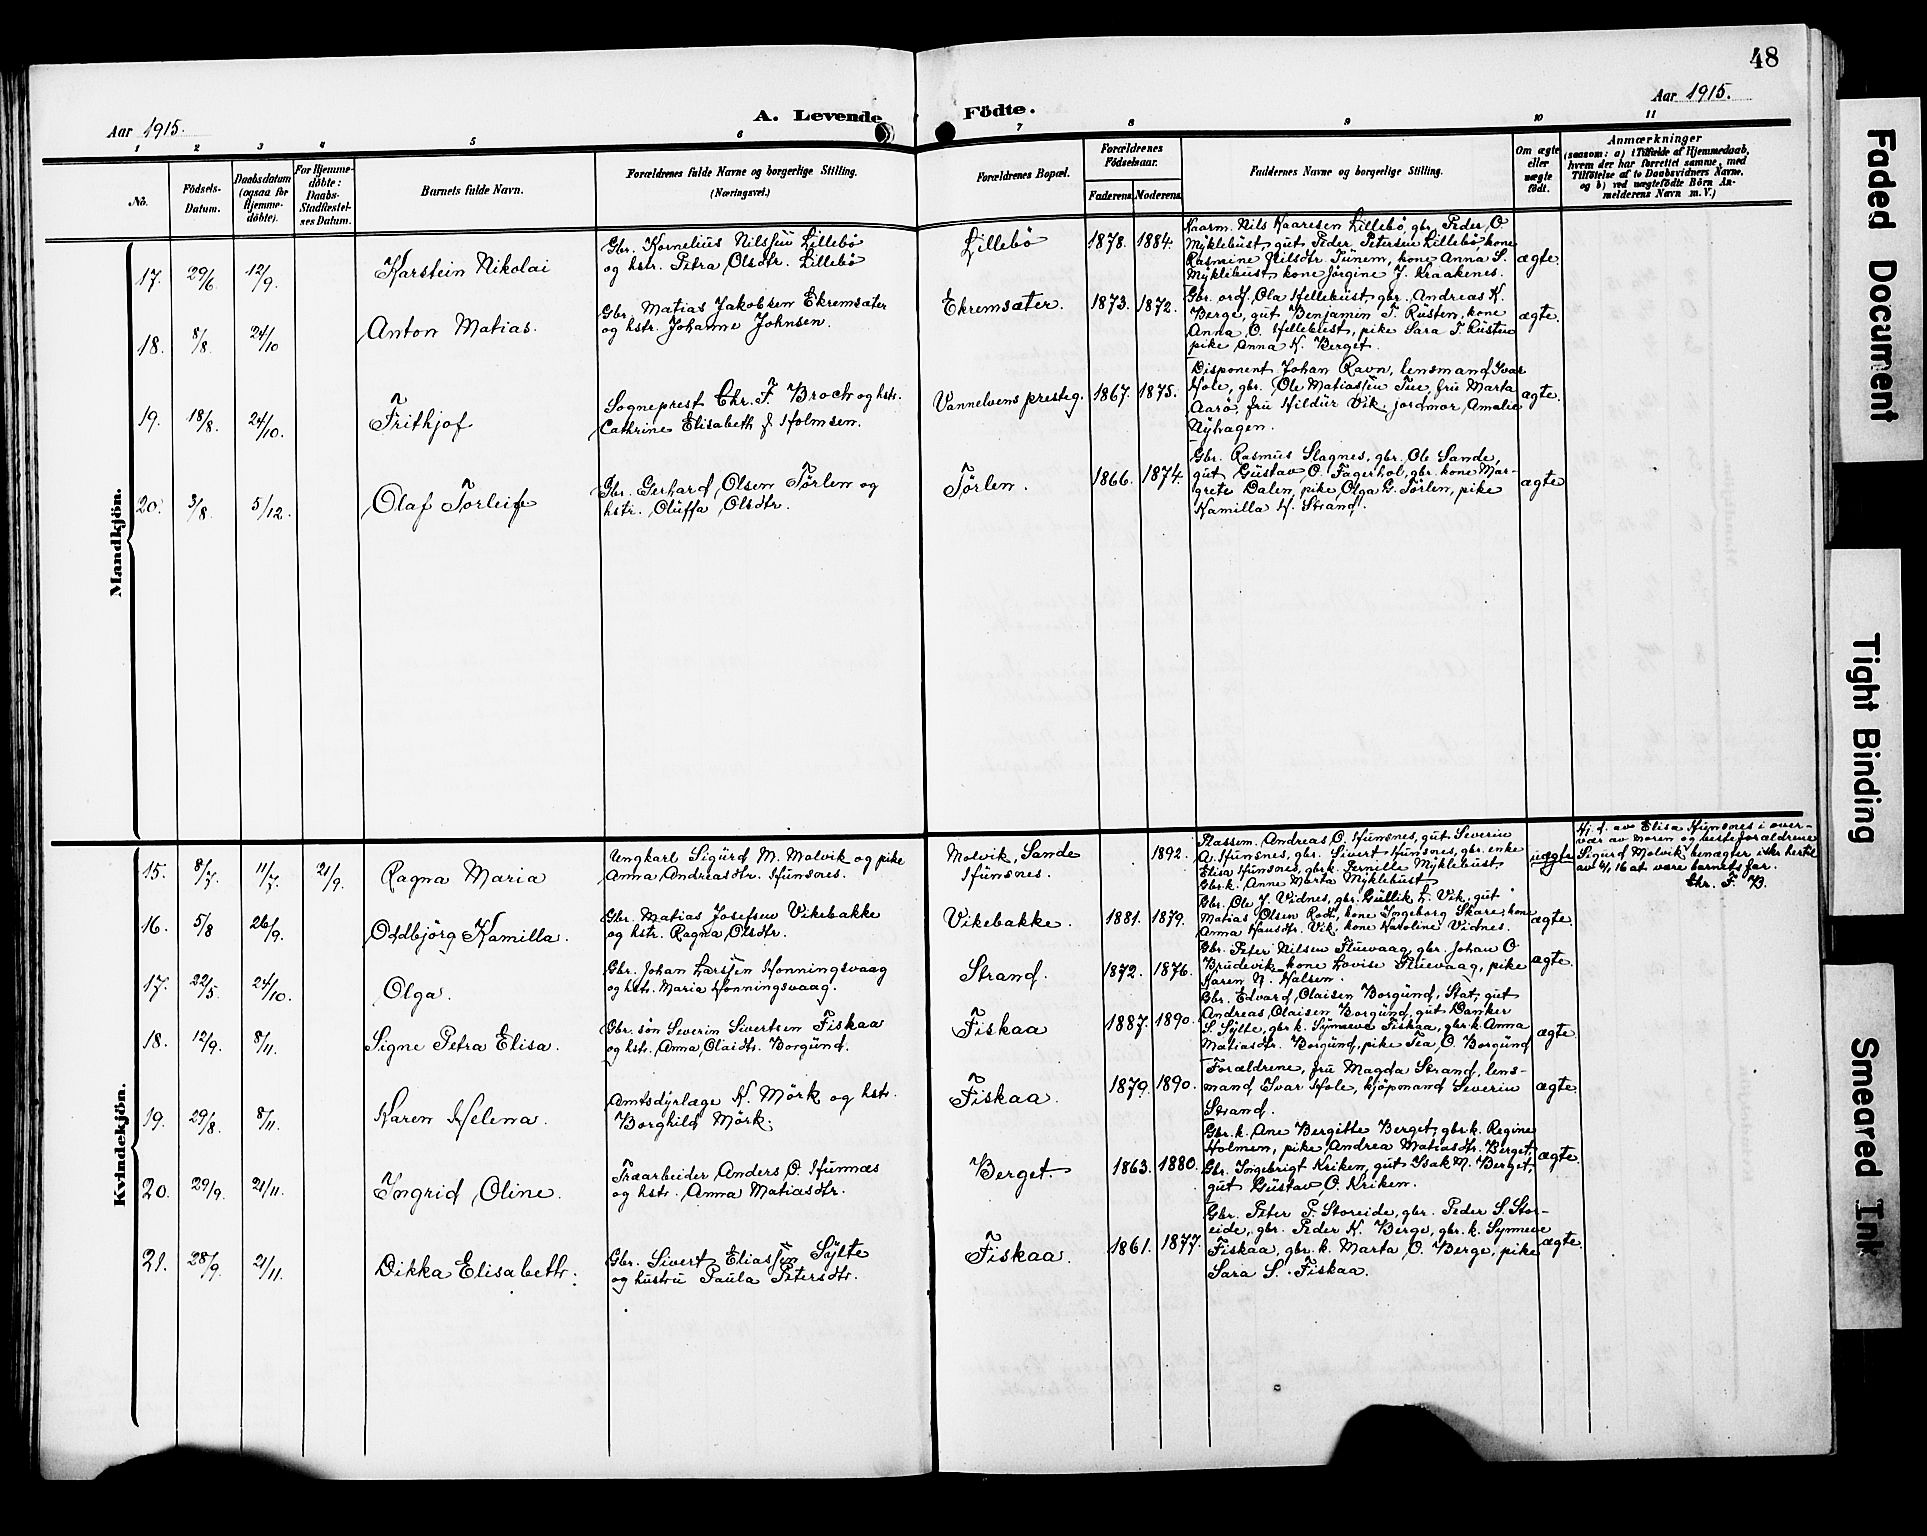 48
Aar 1915.
A. Levende Födte.
Aar 1915.
1 2 3 4 5 6 7 8 9 10 11
No.
Födsels-
Datum.
Daabsdatum
(ogsaa for
Hjemme-
döbte).
For Hjemme-
döbte:
Daabs-
Stadfæstel-
ses Datum.
Barnets fulde Navn.
Forældrenes fulde Navne og borgerlige Stilling.
(Næringsvei.)
Forældrenes Bopæl.
Forældrenes
Födselsaar.
Faderens. Moderens.
Faddernes Navne og borgerlige Stilling.
Om ægte
eller
uægte
födt.
Anmærkninger
(saasom: a) i Tilfælde af Hjemmedaab,
hvem der har forrettet samme, med
Tilföielse af to Daabsvidners Navne,
og b) ved uægtefödte Börn An-
melderens Navn m. V.)
Mandkjön.
17. 29/6 12/9. Karstein Nikolai
Gbr. Kornelius Nilssen Lillebö
og hstr. Petra Olsdtr. Lillebö
Lillebö 1878. 1884.
Kaarm. Nils Kaaresen Lillebö, gbr. Peder O.
Myklebust, gut Peder Petersen Lillebö, kone
Rasmine Nilsdtr. Tunem, kone Anna S.
Myklebust kone Jörgine J. Kraakenes.
ægte.
18. 8/8. 24/10 Anton Matias.
Gbr. Matias Jakobsen Ekremsæter
og hstr. Johanne Johnsen.
Ekremsæter. 1873. 1872.
Gbr. ordf. Ola Hellebust, gbr. Andreas K.
Berge, gut Benjamin T. Rusten, kone
Anna O. Hellebust, pike Sara T. Rusten
pike Anna K. Berget.
ægte.
19. 18/8. 24/10. Frithjof
Sogneprest Chr. F. Broch og hstr.
Cathrine Elisabeth f. Holmsen.
Vannelvens presteg. 1867. 1875.
Disponent Johan Ravn, lensmand Ivar
Hole, gbr. Ole Matiassen Tue, fru Marta
Aarö, fru Hildur Vik, jordmor Amalie
Nyhagen.
ægte.
20. 3/8. 5/12. Olaf Torleif
Gbr. Gerhard Olsen Törlen og
hstr. Oluffa Olsdtr.
Törlen. 1866. 1874.
Gbr. Rasmus Slagnes, gbr. Ole Sande,
gut Gustav O. Fagerhol, gbr. kone Mar-
grete Dalen, pike Olga G. Törlen, pike
Kamilla K. Strand.
ægte
Kvindekjön.
15. 8/7. 11/7. 21/9. Ragna Maria
Ungkarl Sigurd M. Molvik og pike
Anna Andreasdtr. Hunsnes.
Molvik, Sande
Hunsnes.
1892.
Plassem. Andreas O. Hunsnes, gut Severin
A. Hunsnes, gbr. Sivert Hunsnes, gbr. enke
Elisa Hunsnes, gbr.k. Pernille Myklebust
Gbr.k. Anne Marta Myklebust
uægte
Hj. d. av Elisa Hunsnes i over-
vær av moren og besteforældrene
Sigurd Molvik benægter ikke hertil
av 16 at være barnets far.
Chr. F. B.
16. 5/8 26/9. Oddbjörg Kamilla.
Gbr. Matias Josefsen Vikebakke
og hstr. Ragna Olsdtr.
Vikebakke. 1881. 1879.
Gbr. Ole J. Vidnes, gbr. Gullik L. Vik, gut
Matias Olsen Rødt, kone Ingeborg Skare, kone
Anna Hansdtr. Vik, kone Karoline Vidnes.
ægte.
17. 22/5. 24/10. Olga.
Gbr. Johan Larssen Honningsvaag
og hstr. Maria Honningsvaag.
Strand. 1872. 1876.
Gbr. Peter Nilsen Fluevaag, gbr. Johan O.
Brudevik, kone Lovise Fluevaag, pike
Karen N. Halsen.
ægte.
18. 12/9. 8/11. Signe Petra Elisa.
Gbr. sön Severin Sivertsen Fiskaa
og hstr. Anna Olaidtr. Borgund.
Fiskaa 1887. 1890.
Gbr. Edvard Olaisen Borgund, Stat, gut
Andreas Olaisen Borgund, gut Danker
S. Sylte, gbr k. Synneva Fiskaa, gbr.k. Anna
Matiasdtr. Borgund, pike Tea O. Borgund
ægte.
19. 29/8. 8/11. Karen Helena.
Amtsdyrlæge K. Mörk og hstr.
Borghild Mörk.
Fiskaa. 1879. 1890.
Forældrene, fru Magda Strand, lens-
mand Ivar Hole, kjöpmand Severin
Strand.
ægte.
20. 29/9. 21/11. Ingrid Oline.
Træarbeider Anders O. Hunnæs
og hstr. Anna Matiasdtr.
Berget. 1863. 1880.
Gbr.k. Ane Bergitte Berget, gbr.k. Regine
Holmen, pike Andrea Matiasdtr. Berget,
Gbr. Ingebrigt Kriken, gut Isak M. Berget,
gut Gustav O. Kriken.
ægte.
21. 28/9. 21/11. Dikka Elisabeth.
Gbr. Sivert Eliassen Sylte
og hustru Paula Petersdtr.
Fiskaa. 1861. 1877.
Gbr. Peter P. Storeide, gbr. Peder S. Stor-
eide, gbr. Peder K. Berge, gbr.k. Synneve
Fiskaa, gbr.k. Marta O. Berge, pike
Sara S. Fiskaa.
ægte.
Faded Document
Tight Binding
Smeared Ink